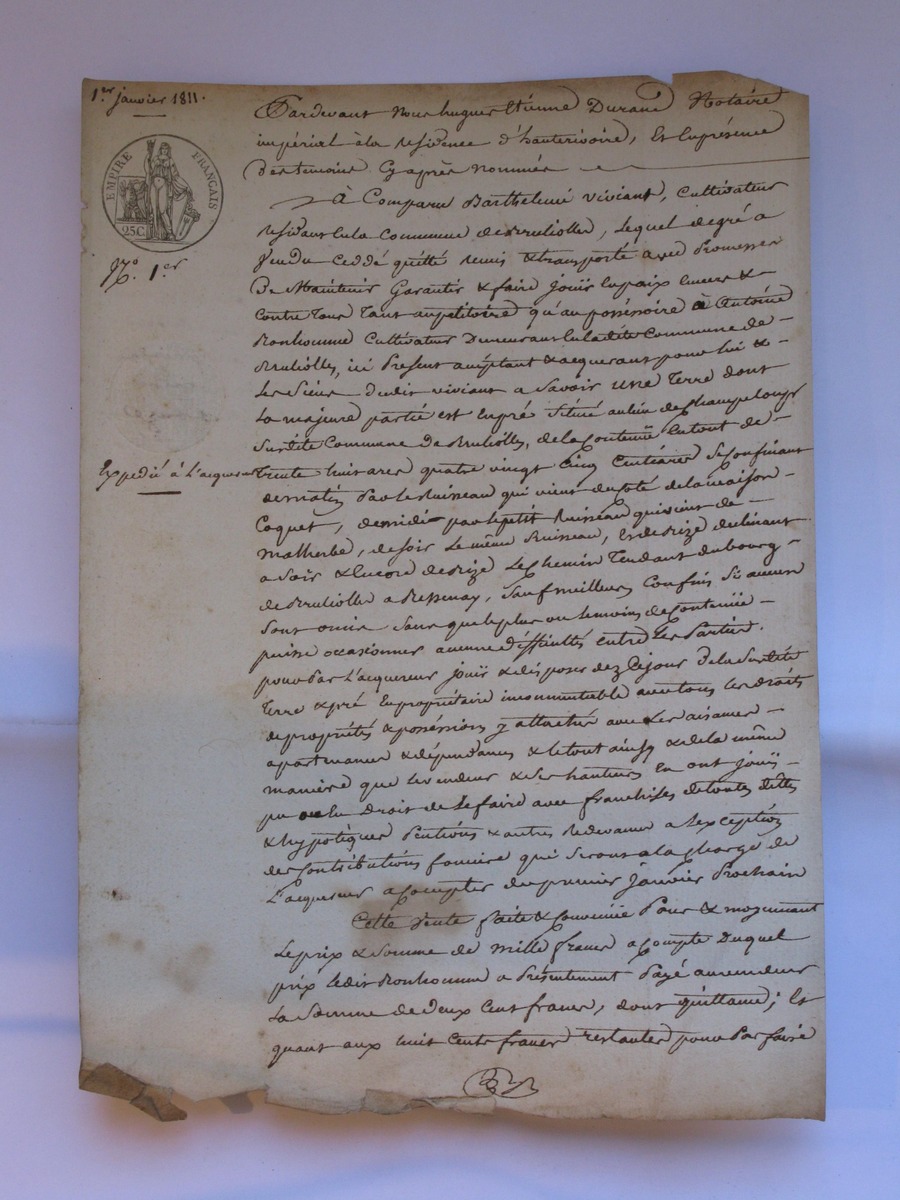 1.er janvier 1811.
EMPIRE FRANÇAIS.
25C.
N.º 1.er
Expedié à l'acquereur
Pardevant Nous hugues Etienne Durand Notaire
impérial à la residence d'hauterivoire, Et en présence
des temoins Cy après nommés
A Comparu Barthelemi Viviant, Cultivateur
residant en la Commune de Brulliolles, lequel de gré a
Vendu Ceddé quitté remis & transporté avec Promesses
De Maintenir Garantir & faire jouir en paix envers &
contre Tous Tant au petitoire qu'au posséssoire à Antoine
Bonhomme Cultivateur Demeurant en la dite Commune de
Brulliolles, ici Present acceptant & acquerant pour lui &
les siens dudit viviant a Savoir une Terre dont
la majeure partie est en pré située au lieu de Champeloup
Susdite Commune de Brulliolles, de la Contenüe en tout de
trente huit ares quatre vingt Cinq Centiares Se Confinant
de matin Par le Ruisseau qui vient du Coté de la maison
Coquet, de midi par le petit Ruisseau qui vient de
Malherbe, de soir le même Ruisseau, Et de bize declinant
a Soir & Encore de bize le Chemin Tendant du bourg
de Brulliolles a Bessenay, Sauf meilleurs Confins Si aucun
Sont omis Sans que le plus ou le moins de Contenüe
puisse occasionner aucune difficultés entre les Parties.
pour Par l'acquereur jouir & disposer dez Ce jour de la Susdite
Terre & pré En propriétaire incommutable avec tous les droits
de propriétés & posséssion y attachés avec Ses aisances
apartenances & dépendances & le tout ainsy & de la même
maniere que le vendeur & Ses hauteurs en ont jouis
pu ou eu Droit de le faire avec franchises de toutes dettes
& hypotèques Pentions & autres Redevances a l'exception
des Contributions fonciere qui Seront a la Charge de
L'acquereur a Compter du premier janvier Prochain
Cette Vente faite & Convenüe Pour & moyennant
Le prix & Somme de Mille francs a Compte Duquel
prix ledit Bonhomme a Présentement Payé au vendeur
la Somme de Deux Cent francs, dont quittance; Et
quant aux huit Cents francs restantes pour Parfaire